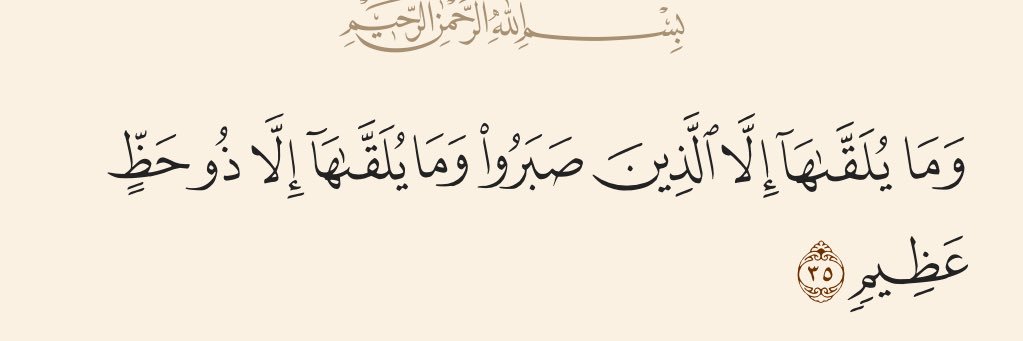 بِسْمِ اللَّهِ الرَّحْمَٰنِ الرَّحِيمِ
وَمَا يُلَقَّىٰهَآ إِلَّا ٱلَّذِينَ صَبَرُوا۟ وَمَا يُلَقَّىٰهَآ إِلَّا ذُو حَظٍّ
عَظِيمٍ ٣٥